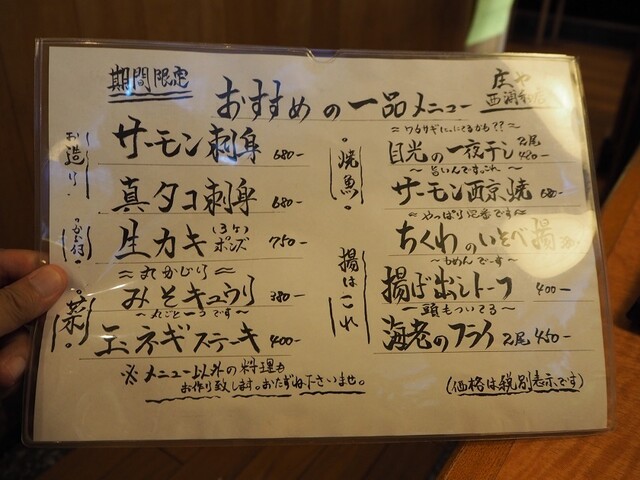 期間限定
おすすめの一品メニュー
庄や
西浦和店
お造り
サーモン刺身 680-
真タコ刺身 680-
生カキ (3ケ) ポンズ 750-
〜丸かじり〜
みそキュウリ 380-
〜丸ごと一つです〜
玉ネギステーキ 400-
菜
焼魚
〜ワカサギににてるかも??〜
目光の一夜干し 2尾 480-
〜旨いんです、これ〜
サーモン西京焼 680-
〜やっぱり定番です〜
揚はこれ
ちくわのいそべ揚
〜もめんでーす〜
揚げ出しトーフ 400-
〜頭もついてる〜
海老のフライ 2尾 450-
※メニュー以外の料理も
お作り致します。おたずね下さいませ。
(価格は税別表示です)